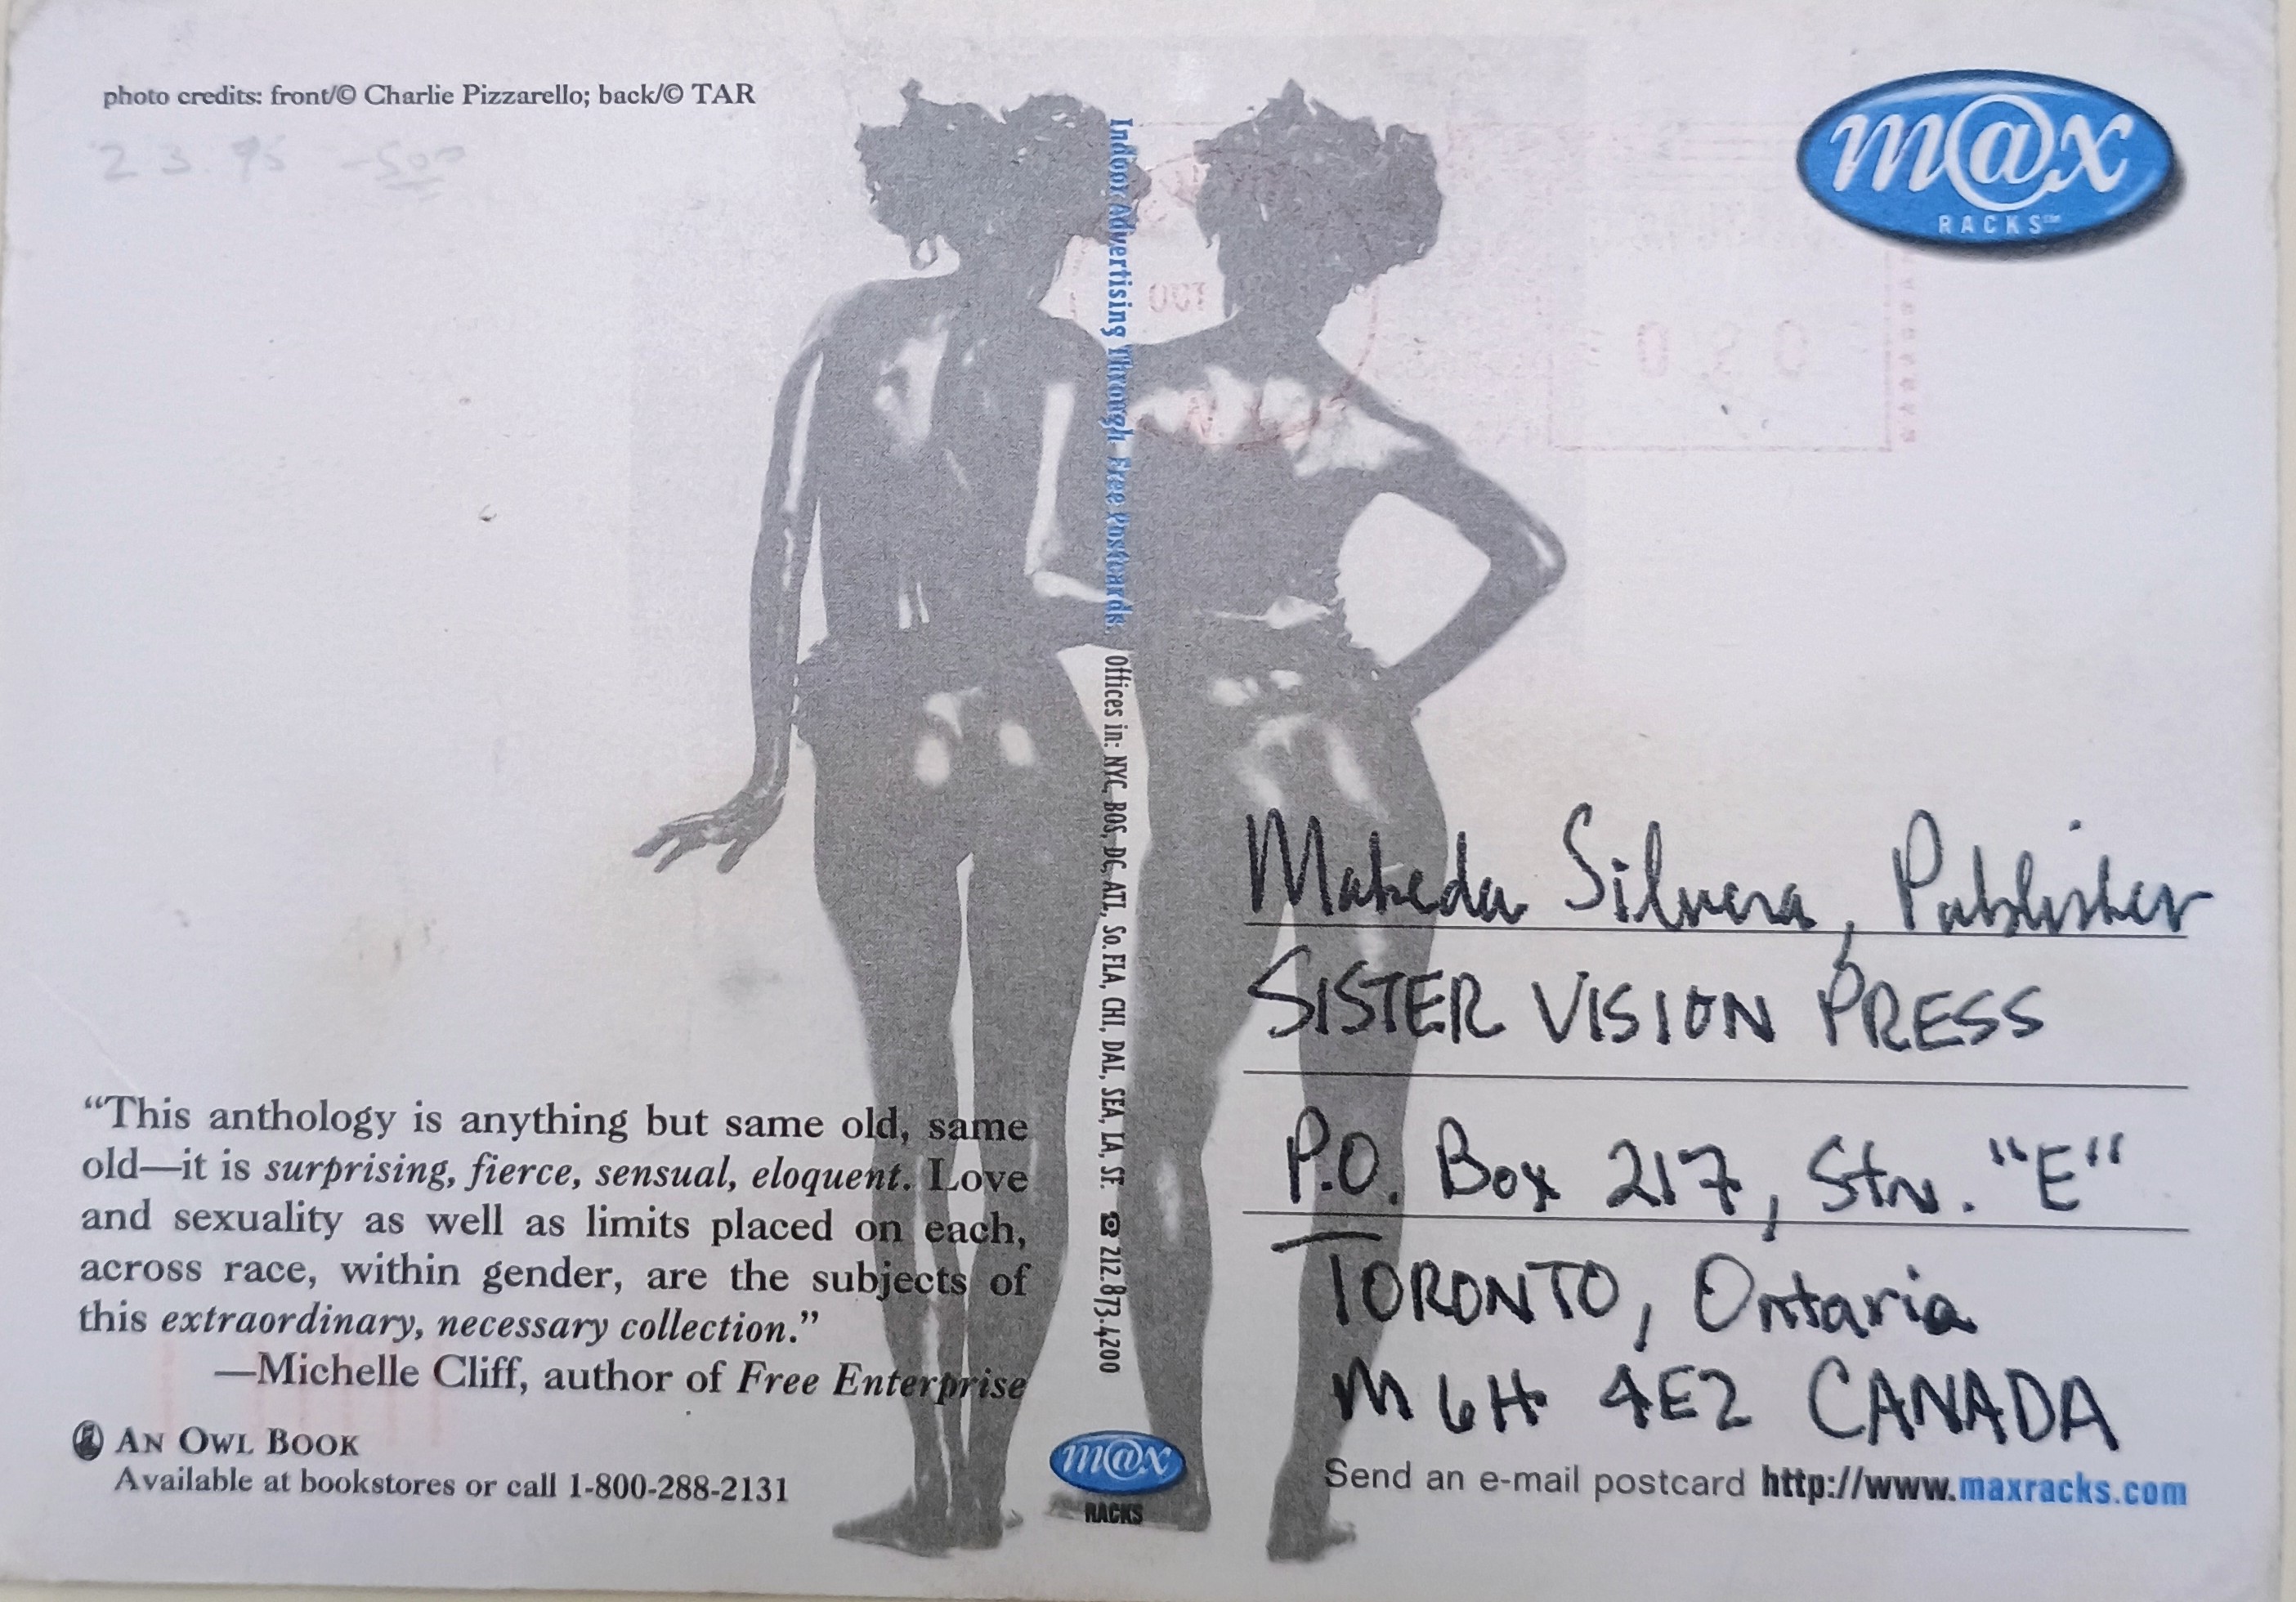 photo credits: front/© Charlie Pizzarello; back/© TAR
m@x
RACKS™
Indoor Advertising Through Free Postcards. Offices in: NYC, BOS, DC, ATL, So. FLA, CHI, DAL, SEA, LA, SF. ☎ 212.873.4200
Makeda Silvera, Publisher
SISTER VISION PRESS
P.O. Box 217, Stn. "E"
TORONTO, Ontario
M6H 4E2 CANADA
“This anthology is anything but same old, same
old—it is surprising, fierce, sensual, eloquent. Love
and sexuality as well as limits placed on each,
across race, within gender, are the subjects of
this extraordinary, necessary collection.”
—Michelle Cliff, author of Free Enterprise
AN OWL BOOK
Available at bookstores or call 1-800-288-2131
m@x
RACKS
Send an e-mail postcard http://www.maxracks.com